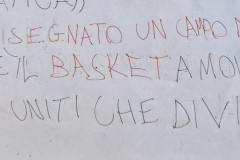 ISEGNATO UN CAMPO
E'IL BASKET A MO
UNITI CHE DIVI